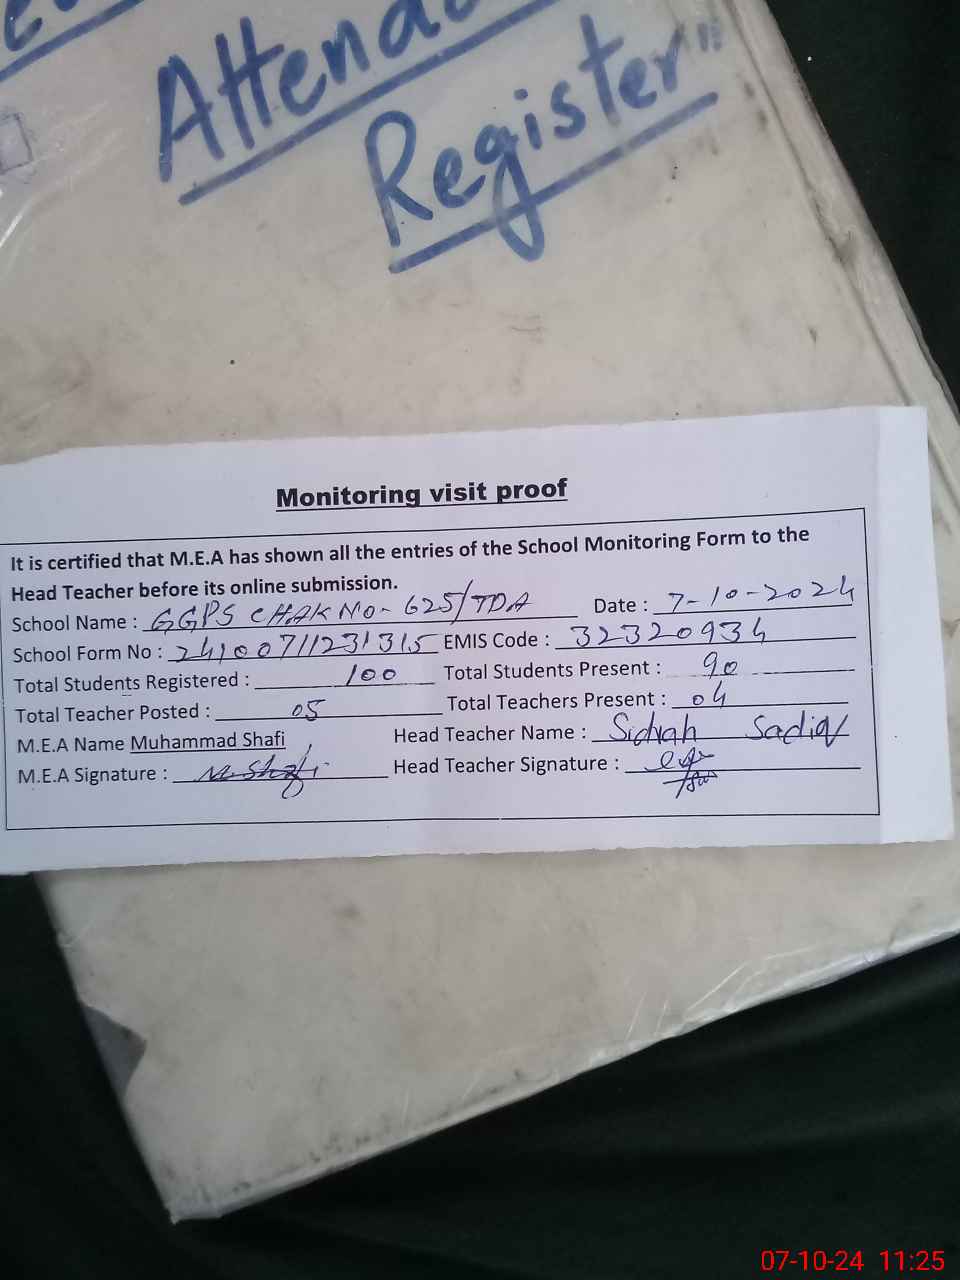 Attenda
Register"
Monitoring visit proof
It is certified that M.E.A has shown all the entries of the School Monitoring Form to the
Head Teacher before its online submission.
School Name : GGPS CHAK NO- 625/TDA Date : 7-10-2024
School Form No : 2410071123 1315 EMIS Code : 32320934
Total Students Registered : 100 Total Students Present : 90
Total Teacher Posted : 05 Total Teachers Present : 04
M.E.A Name Muhammad Shafi Head Teacher Name : Sidrah Sadiq
M.E.A Signature : M. Shafi Head Teacher Signature :
07-10-24 11:25